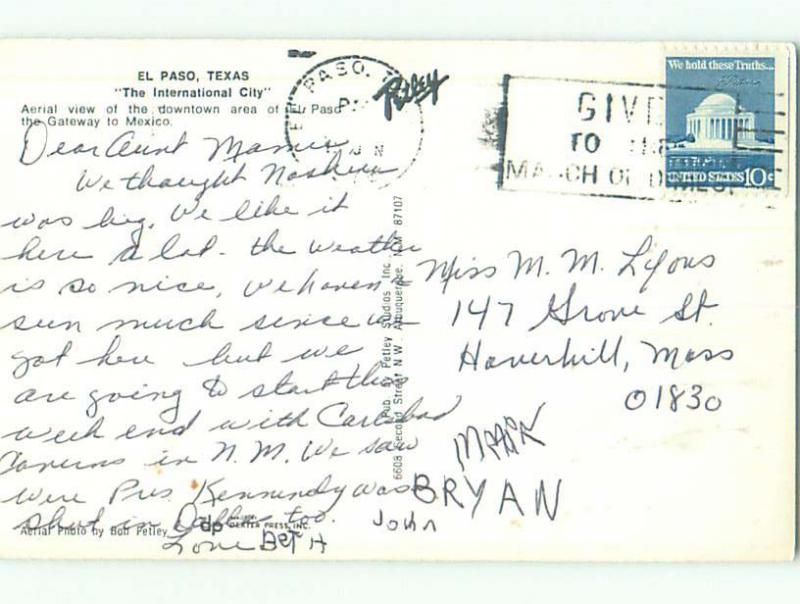 EL PASO, TEXAS
"The International City"
Aerial view of the downtown area of El Paso
the Gateway to Mexico.
EL PASO, T
Petley
GIVE
TO THE
MARCH OF DIMES
We hold these Truths...
UNITED STATES 10c
Dear Aunt Mamie
We thought Nashua
was big. We like it
here a lot. the weather
is so nice, We haven't
seen much since we
got here but we
are going to start this
week end with Carlsbad
Caverns in N.M. We saw
were Pres Kennendy was
shot in Dallas too.
Love BETH
John
BRYAN
MARK
Pub. by Petley Studios Inc.
6608 Second Street N.W. Albuquerque, N.M. 87107
Miss M. M. Lyons
147 Grove St.
Haverhill, Mass
01830
Aerial Photo by Bob Petley
dp
DEXTER PRESS, INC.